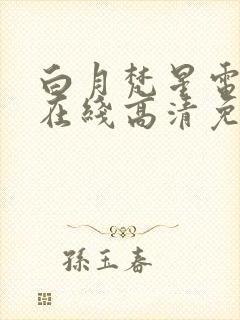 白月梵星電
在綫高清免
孫玉春